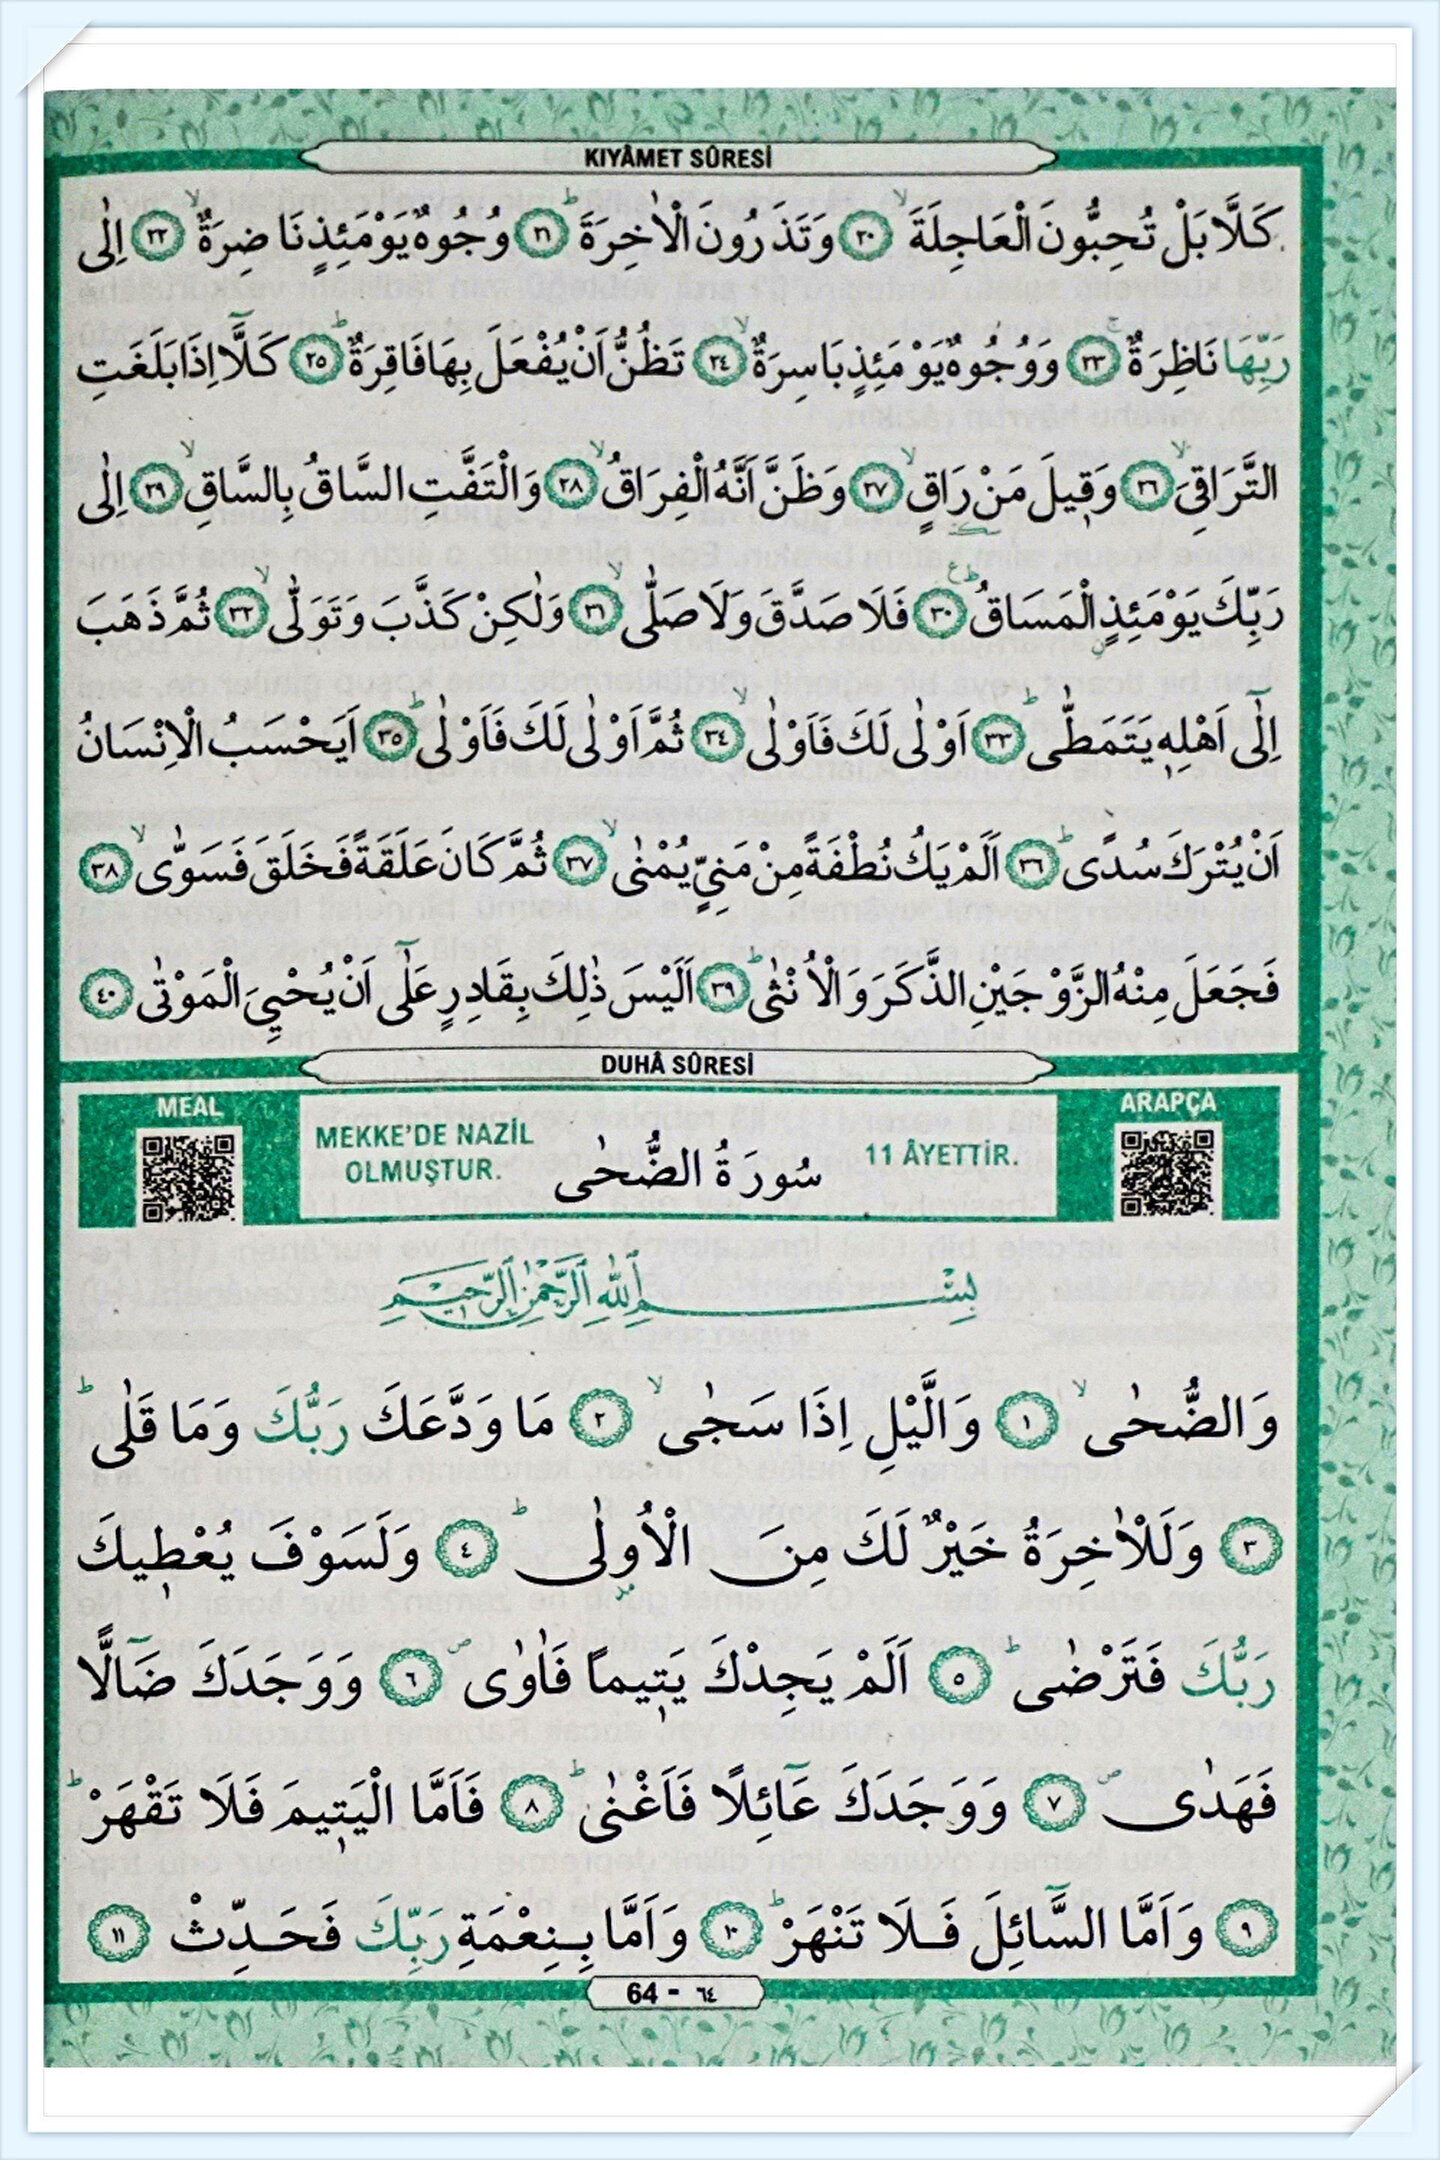 KIYÂMET SÛRESİ
كَلَّا بَلْ تُحِبُّونَ الْعَاجِلَةَۙ ﴿٢٠﴾ وَتَذَرُونَ الْاٰخِرَةَۜ ﴿٢١﴾ وُجُوهٌ يَوْمَئِذٍ نَاضِرَةٌۙ ﴿٢٢﴾ اِلٰى
رَبِّهَا نَاظِرَةٌۚ ﴿٢٣﴾ وَوُجُوهٌ يَوْمَئِذٍ بَاسِرَةٌۙ ﴿٢٤﴾ تَظُنُّ اَنْ يُفْعَلَ بِهَا فَاقِرَةٌۜ ﴿٢٥﴾ كَلَّٓا اِذَا بَلَغَتِ
التَّرَاقِيَۙ ﴿٢٦﴾ وَقٖيلَ مَنْ رَاقٍۙ ﴿٢٧﴾ وَظَنَّ اَنَّهُ الْفِرَاقُۙ ﴿٢٨﴾ وَالْتَفَّتِ السَّاقُ بِالسَّاقِۙ ﴿٢٩﴾ اِلٰى
رَبِّكَ يَوْمَئِذٍ الْمَسَاقُۜ ﴿٣٠﴾ فَلَا صَدَّقَ وَلَا صَلّٰىۙ ﴿٣١﴾ وَلٰكِنْ كَذَّبَ وَتَوَلّٰىۙ ﴿٣٢﴾ ثُمَّ ذَهَبَ
اِلٰٓى اَهْلِهٖ يَتَمَطّٰىۜ ﴿٣٣﴾ اَوْلٰى لَكَ فَاَوْلٰىۙ ﴿٣٤﴾ ثُمَّ اَوْلٰى لَكَ فَاَوْلٰىۜ ﴿٣٥﴾ اَيَحْسَبُ الْاِنْسَانُ
اَنْ يُتْرَكَ سُدًىۜ ﴿٣٦﴾ اَلَمْ يَكُ نُطْفَةً مِنْ مَنِيٍّ يُمْنٰىۙ ﴿٣٧﴾ ثُمَّ كَانَ عَلَقَةً فَخَلَقَ فَسَوّٰىۙ ﴿٣٨﴾
فَجَعَلَ مِنْهُ الزَّوْجَيْنِ الذَّكَرَ وَالْاُنْثٰىۜ ﴿٣٩﴾ اَلَيْسَ ذٰلِكَ بِقَادِرٍ عَلٰٓى اَنْ يُحْيِيَ الْمَوْتٰى ﴿٤٠﴾
DUHÂ SÛRESİ
MEAL
ARAPÇA
MEKKE'DE NAZİL
OLMUŞTUR.
سُورَةُ الضُّحٰى
11 ÂYETTİR.
بِسْمِ اللّٰهِ الرَّحْمٰنِ الرَّحٖيمِ
وَالضُّحٰىۙ ﴿١﴾ وَالَّيْلِ اِذَا سَجٰىۙ ﴿٢﴾ مَا وَدَّعَكَ رَبُّكَ وَمَا قَلٰىۜ
﴿٣﴾ وَلَلْاٰخِرَةُ خَيْرٌ لَكَ مِنَ الْاُو۫لٰىۜ ﴿٤﴾ وَلَسَوْفَ يُعْطٖيكَ
رَبُّكَ فَتَرْضٰىۜ ﴿٥﴾ اَلَمْ يَجِدْكَ يَتٖيماً فَاٰوٰىۖ ﴿٦﴾ وَوَجَدَكَ ضَٓالًّا
فَهَدٰىۖ ﴿٧﴾ وَوَجَدَكَ عَٓائِلًا فَاَغْنٰىۜ ﴿٨﴾ فَاَمَّا الْيَتٖيمَ فَلَا تَقْهَرْۜ
﴿٩﴾ وَاَمَّا السَّٓائِلَ فَلَا تَنْهَرْۜ ﴿١٠﴾ وَاَمَّا بِنِعْمَةِ رَبِّكَ فَحَدِّثْ ﴿١١﴾
64 - ٦٤